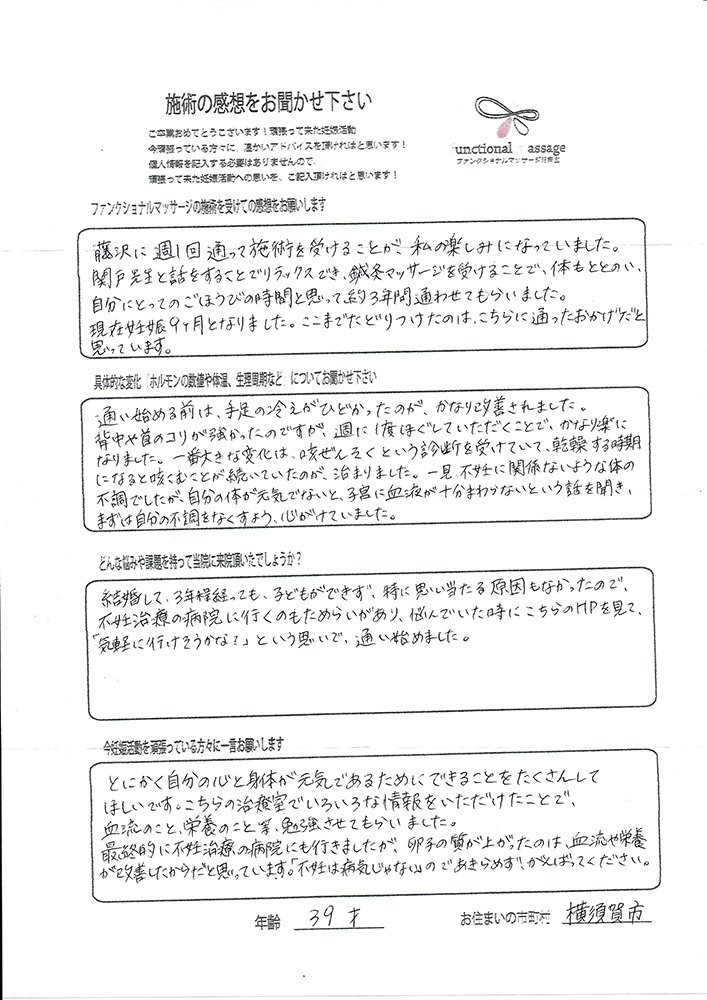 施術の感想をお聞かせ下さい
ご卒業おめでとうございます！頑張って来た妊娠活動
今頑張っている方々に、温かいアドバイスを頂ければと思います！
個人情報を記入する必要はありませんので、
頑張って来た妊娠活動への思いを、ご記入頂ければと思います！
unctional assage
ファンクショナルマッサージ
ファンクショナルマッサージの施術を受けての感想をお願いします
藤沢に週1回通って施術を受けることが、私の楽しみになっていました。
関戸先生と話をすることでリラックスでき、鍼灸マッサージを受けることで、体もととのい、
自分にとってのごほうびの時間と思って約3年間通わせてもらいました。
現在妊娠9ヶ月となりました。ここまでたどりつけたのは、こちらに通ったおかげだと
思っています。
具体的な変化「ホルモンの数値や体温、生理周期など」についてお聞かせ下さい
通い始める前は、手足の冷えがひどかったのが、かなり改善されました。
背中や首のコリが強かったのですが、週に1度ほぐしていただくことで、かなり楽に
なりました。一番大きな変化は、咳ぜんそくという診断を受けていて、乾燥する時期
になると咳こむことが続いていたのが、治まりました。一見、不妊に関係ないような体の
不調でしたが、自分の体が元気でないと、子宮に血液が十分まわらないという話を聞き、
まずは自分の不調をなくすよう、心がけていました。
どんな悩みや課題を持って当院に来院頂いたでしょうか？
結婚して、3年程経っても、子どもができず、特に思い当たる原因もなかったので、
不妊治療の病院に行くのもためらいがあり、悩んでいた時にこちらのHPを見て、
「気軽に行けそうかな？」という思いで、通い始めました。
今妊娠活動を頑張っている方々に一言お願いします
とにかく自分の心と身体が元気であるためにできることをたくさんして
ほしいです。こちらの治療室でいろいろな情報をいただけたことで、
血流のこと、栄養のこと等、勉強させてもらいました。
最終的に不妊治療の病院にも行きましたが、卵子の質が上がったのは、血流や栄養
が改善したからだと思っています。「不妊は病気じゃない」のであきらめず、がんばってください。
年齢 39才 お住まいの市町村 横須賀市